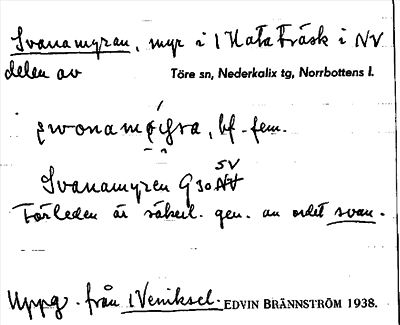 Svanamyran, myr i 1 Hataträsk i NV
delen av Töre sn, Nederkalix tg, Norrbottens l.
bf. fem.
SV
Svanamyren G 30 NV
Förleden är säkerl. gen. av ordet svan.
Uppg. från 1 Veniksel. EDVIN BRÄNNSTRÖM 1938.